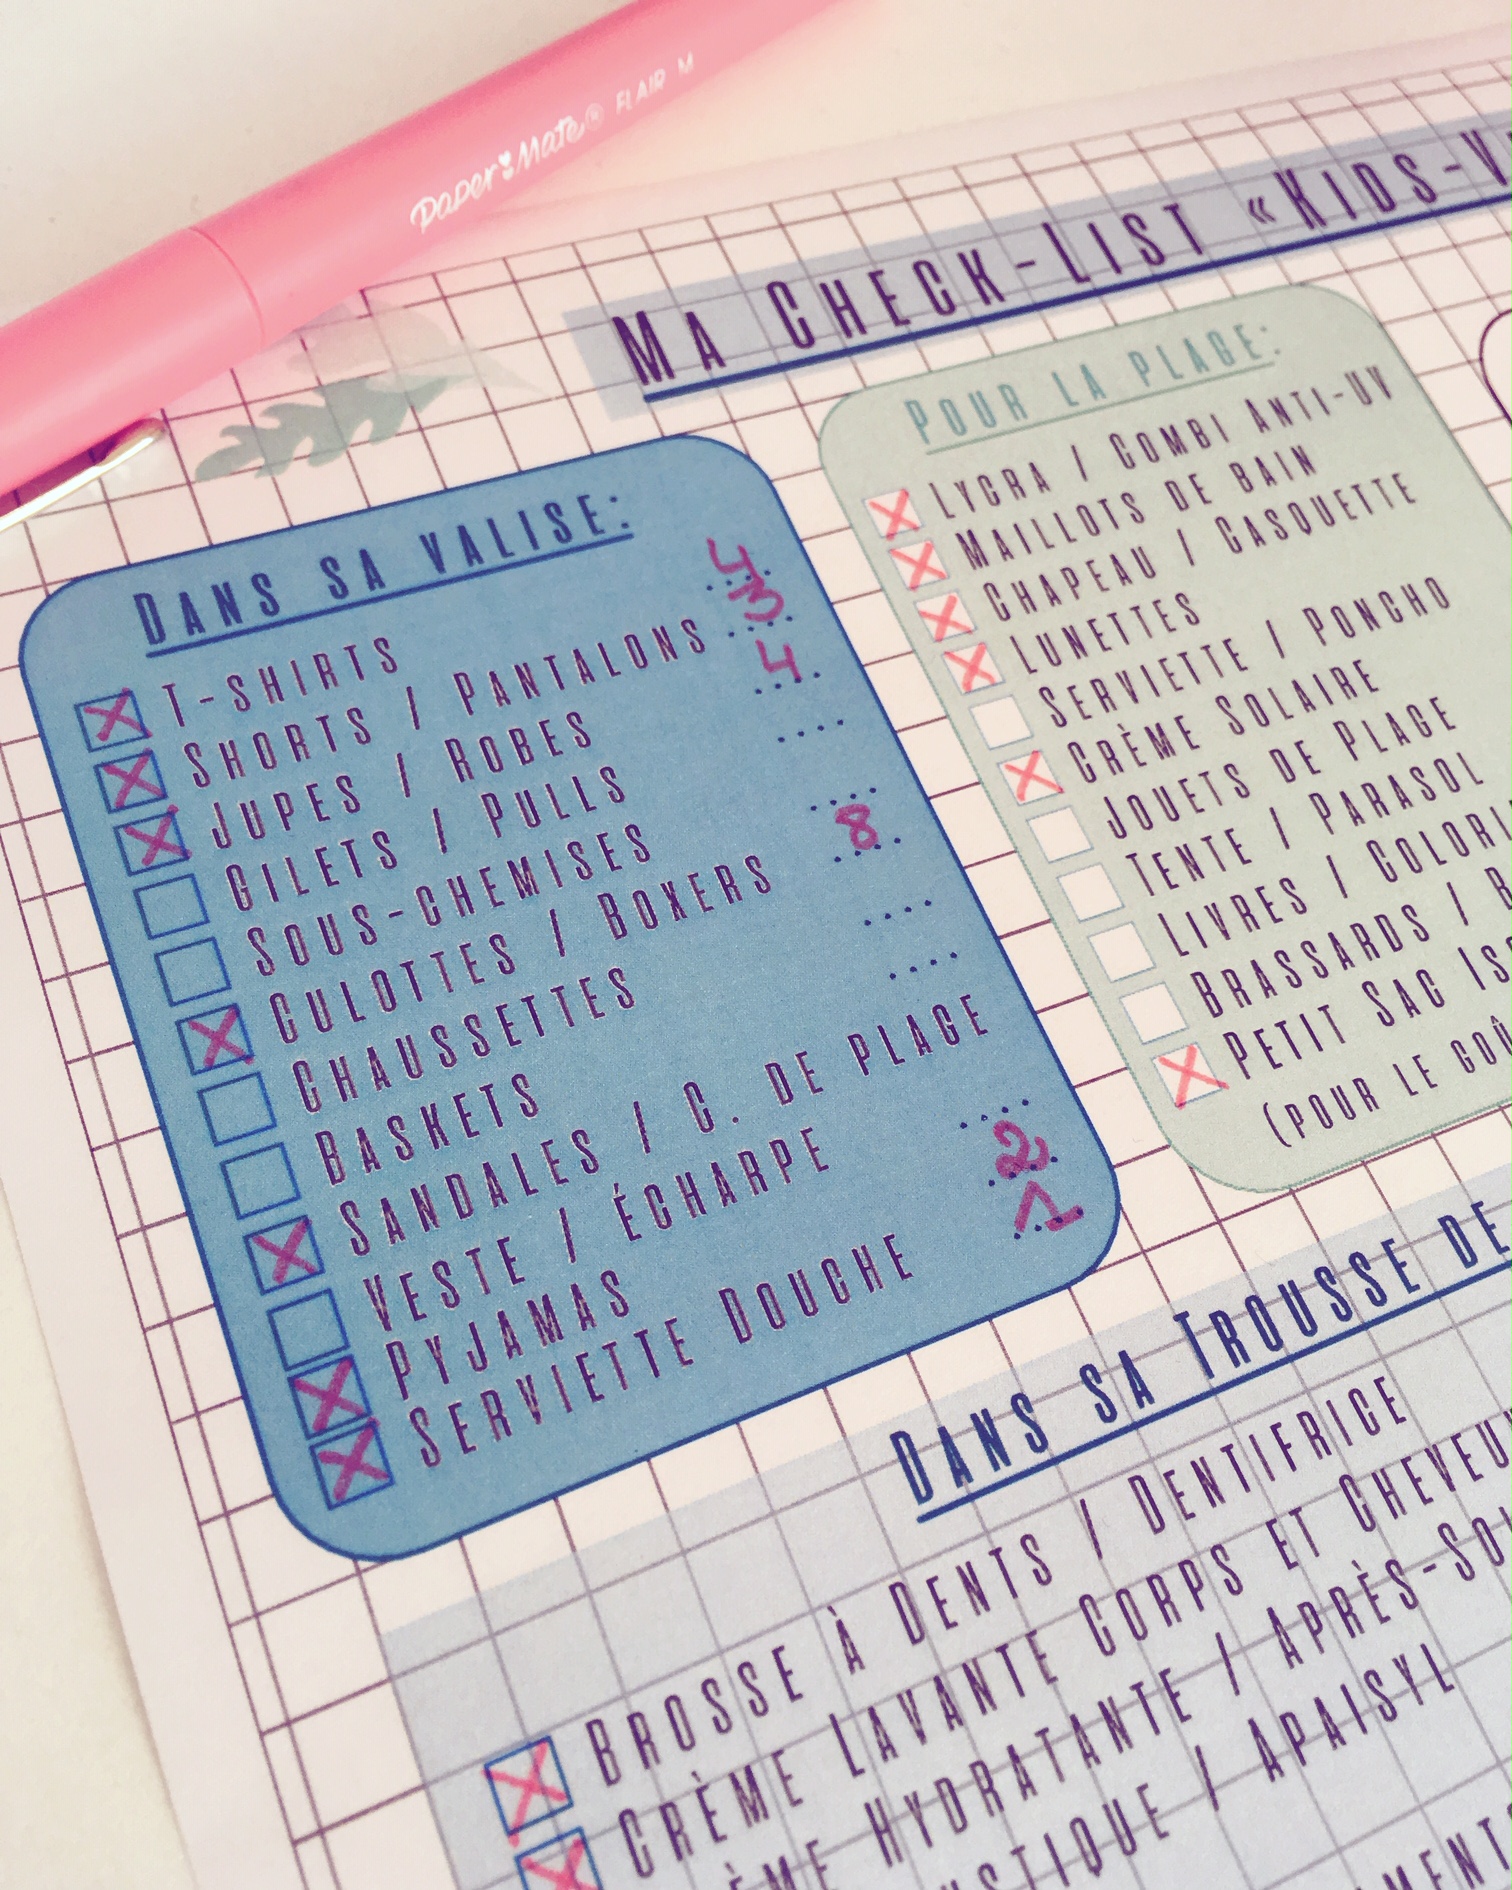 Paper Mate® FLAIR M
MA CHECK-LIST «KIDS-V
DANS SA VALISE:
T-SHIRTS .... 4
SHORTS / PANTALONS .... 3
JUPES / ROBES .... 4
GILETS / PULLS ....
SOUS-CHEMISES ....
CULOTTES / BOXERS .... 8
CHAUSSETTES ....
BASKETS ....
SANDALES / C. DE PLAGE
VESTE / ÉCHARPE ....
PYJAMAS .... 2
SERVIETTE DOUCHE .... 1
POUR LA PLAGE:
LYCRA / COMBI ANTI-UV
MAILLOTS DE BAIN
CHAPEAU / CASQUETTE
LUNETTES
SERVIETTE / PONCHO
CRÈME SOLAIRE
JOUETS DE PLAGE
TENTE / PARASOL
LIVRES / COLORI
BRASSARDS / B
PETIT SAC ISO
(POUR LE GOÛ
DANS SA TROUSSE DE
BROSSE À DENTS / DENTIFRICE
CRÈME LAVANTE CORPS ET CHEVEU
ÈME HYDRATANTE / APRÈS-SOL
USTIQUE / APAISYL
MENT